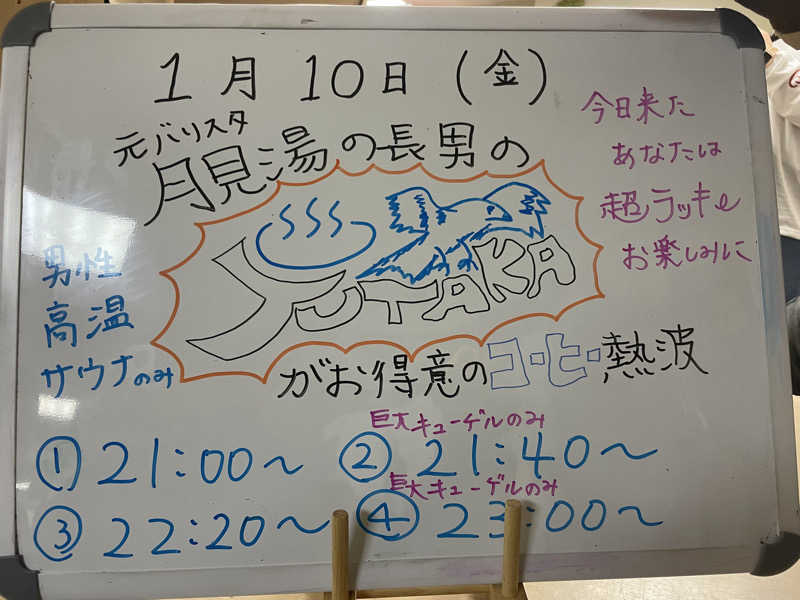 1月10日(金)
元バリスタ
月見湯の長男の
YUTAKA
がお得意のコ・ヒ・熱波
今日来た
あなたは
超ラッキー
お楽しみに
男性
高温
サウナのみ
①21:00〜
巨大キューゲルのみ
②21:40〜
③22:20〜
巨大キューゲルのみ
④23:00〜